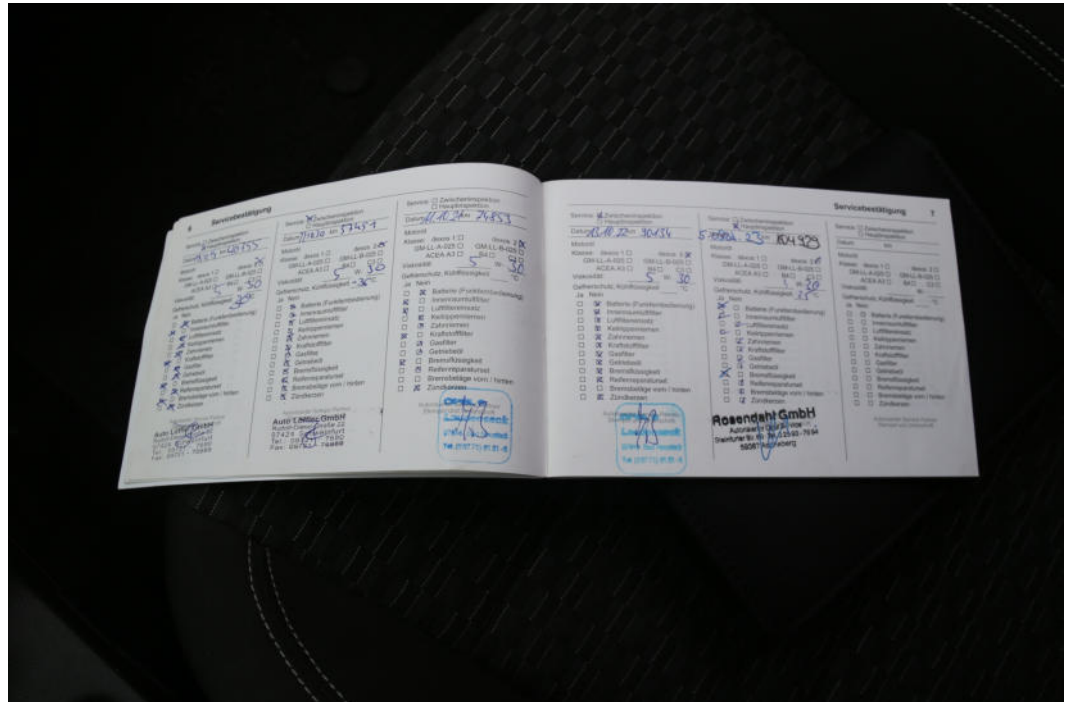 6 Servicebestätigung
Service: Zwischeninspektion
Hauptinspektion
Datum km
Motoröl
Klasse: dexos 1 dexos 2
GM-LL-A-025 GM-LL-B-025
ACEA A3 B4 C3
Viskosität 5 W- 30
Gefrierschutz, Kühlflüssigkeit
Ja Nein
Batterie (Funkfernbedienung)
Innenraumluftfilter
Luftfiltereinsatz
Keilrippenriemen
Zahnriemen
Kraftstofffilter
Gasfilter
Getriebeöl
Bremsflüssigkeit
Reifenreparaturset
Bremsbeläge vorn / hinten
Zündkerzen
Service: Zwischeninspektion
Hauptinspektion
Datum km 57451
Motoröl
Klasse: dexos 1 dexos 2
GM-LL-A-025 GM-LL-B-025
ACEA A3 B4 C3
Viskosität 5 W- 30
Gefrierschutz, Kühlflüssigkeit
Ja Nein
Batterie (Funkfernbedienung)
Innenraumluftfilter
Luftfiltereinsatz
Keilrippenriemen
Zahnriemen
Kraftstofffilter
Gasfilter
Getriebeöl
Bremsflüssigkeit
Reifenreparaturset
Bremsbeläge vorn / hinten
Zündkerzen
GmbH
97424
Service: Zwischeninspektion
Hauptinspektion
Datum km 74853
Motoröl
Klasse: dexos 1 dexos 2
GM-LL-A-025 GM-LL-B-025
ACEA A3 B4 C3
Viskosität 5 W- 30
Gefrierschutz, Kühlflüssigkeit °C
Ja Nein
Batterie (Funkfernbedienung)
Innenraumluftfilter
Luftfiltereinsatz
Keilrippenriemen
Zahnriemen
Kraftstofffilter
Gasfilter
Getriebeöl
Bremsflüssigkeit
Reifenreparaturset
Bremsbeläge vorn / hinten
Zündkerzen
Servicebestätigung 7
Service: Zwischeninspektion
Hauptinspektion
Datum 13.10.22 km 90134
Motoröl
Klasse: dexos 1 dexos 2
GM-LL-A-025 GM-LL-B-025
ACEA A3 B4 C3
Viskosität 5 W- 30
Gefrierschutz, Kühlflüssigkeit °C
Ja Nein
Batterie (Funkfernbedienung)
Innenraumluftfilter
Luftfiltereinsatz
Keilrippenriemen
Zahnriemen
Kraftstofffilter
Gasfilter
Getriebeöl
Bremsflüssigkeit
Reifenreparaturset
Bremsbeläge vorn / hinten
Zündkerzen
Service: Zwischeninspektion
Hauptinspektion
104925
Motoröl
Klasse: dexos 1 dexos 2
GM-LL-A-025 GM-LL-B-025
ACEA A3 B4 C3
Viskosität
Gefrierschutz, Kühlflüssigkeit
Ja Nein
Batterie (Funkfernbedienung)
Innenraumluftfilter
Luftfiltereinsatz
Keilrippenriemen
Zahnriemen
Kraftstofffilter
Gasfilter
Getriebeöl
Bremsflüssigkeit
Reifenreparaturset
Bremsbeläge vorn / hinten
Zündkerzen
Rosendahl GmbH
Service: Zwischeninspektion
Hauptinspektion
Datum km
Motoröl
Klasse: dexos 1 dexos 2
GM-LL-A-025 GM-LL-B-025
ACEA A3 B4 C3
Viskosität W-
Gefrierschutz, Kühlflüssigkeit °C
Ja Nein
Batterie (Funkfernbedienung)
Innenraumluftfilter
Luftfiltereinsatz
Keilrippenriemen
Zahnriemen
Kraftstofffilter
Gasfilter
Getriebeöl
Bremsflüssigkeit
Reifenreparaturset
Bremsbeläge vorn / hinten
Zündkerzen